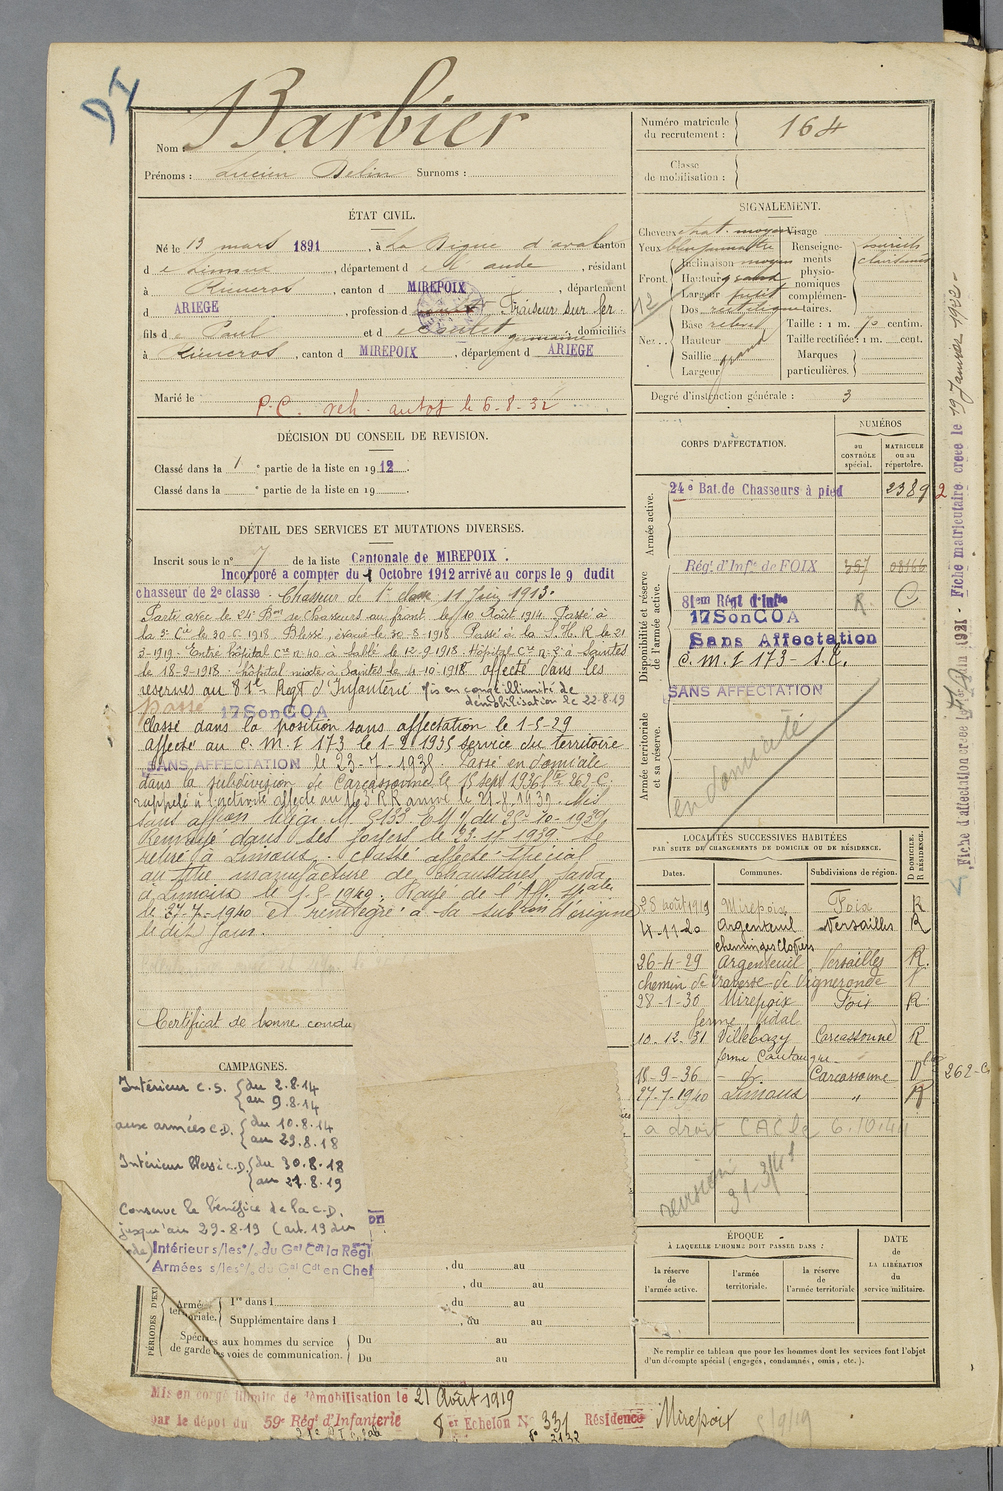 DI
Nom : Barbier
Prénoms : Lucien Delin Surnoms :
ÉTAT CIVIL.
Né le 13 mars 1891, à La Digne d'aval canton
d e Limoux, département d e l'aude, résidant
à Rieucros, canton d MIREPOIX, département
d ARIEGE, profession d Fraiseur sur fer
fils d e Paul et d e Soulet germaine, domiciliés
à Rieucros, canton d MIREPOIX, département d ARIEGE
Marié le
P.C. veh. autos le 6-8-32
DÉCISION DU CONSEIL DE REVISION.
Classé dans la 1e partie de la liste en 1912.
Classé dans la e partie de la liste en 19
DÉTAIL DES SERVICES ET MUTATIONS DIVERSES.
Inscrit sous le n° 7 de la liste Cantonale de MIREPOIX.
Incorporé a compter du 1 Octobre 1912 arrivé au corps le 9 dudit
chasseur de 2e classe. Chasseur de 1re classe 11 Juin 1913.
Parti avec le 24e Bon de Chasseurs au front le 10 Août 1914. Passé à
la Cie le 30-6-1918. Blessé, évacué le 30-8-1918. Passé à la S.H.R le 21
3-1919. Entré hôpital cre n° 40 à Sablé le 12-9-1918. Hôpital cre n° 2 à Saintes
le 18-9-1918. hôpital mixte à Saintes le 4-10-1918 affecté dans les
réserves au 81e Regt d'Infanterie Mis en congé illimité de
démobilisation le 22-8-19
Passé 17 Son COA
Classé dans la position sans affectation le 1-5-29
affecté au C.M.I 173 le 1-2-1935 service du territoire
SANS AFFECTATION le 23-7-1935. Passé en domicile
dans la subdivision de Carcassonne le 18 sept 1936 262-C.
rappelé à l'activité affecté au RR arrivé le 21-8-1939. Mis
sans affon télégr. M. 3133 EM1 du 10-1939.
Renvoyé dans ses foyers le 23-11-1939. Se
retire à Limoux. Classé affecté spécial
au titre manufacture de chaussures
à Limoux le 1-5-1940. Rayé de l'Aff. Spale
le 27-7-1940 et réintégré à sa subon d'origine
le dit jour.
Certificat de bonne condu
CAMPAGNES.
Intérieur C.S. du 2.8.14
au 9.8.14
aux armées C.D. du 10.8.14
au 29.8.18
Intérieur blessé C.D. du 30.8.18
au 21.8.19
Conserve le bénéfice de la C.D.
jusqu'au 29-8-19 (art. 19 du
de)
Intérieur s/les °/. du Gal Cdt la Régi
Armées s/les °/. du Gal Cdt en Chef
, du au
, du au
PÉRIODES D'EX
Armée territoriale.
1re dans l , du au
Supplémentaire dans l , du au
Spéciales aux hommes du service
de garde des voies de communication.
Du au
Du au
Mis en congé illimité de démobilisation le 21 Août 1919
par le dépot du 59e Régt d'Infanterie 8 er Echelon N° 331 Résidence Mirepoix 5/9/19
Numéro matricule
du recrutement : 164
Classe
de mobilisation :
SIGNALEMENT.
Cheveux chat. moyen
Yeux bleu jaunâtre
Front. Inclinaison moyen
Hauteur grand
Largeur petit
Nez. Dos rectiligne
Base relevé
Hauteur
Saillie grand
Largeur
Visage
Renseignements physionomiques complémentaires.
sourcils
clairsemés
Taille : 1 m. 70 centim.
Taille rectifiée : 1 m. cent.
Marques
particulières.
Degré d'instruction générale : 3
CORPS D'AFFECTATION.
NUMÉROS
au
CONTRÔLE
spécial.
MATRICULE
ou au
répertoire.
Armée active.
24e Bat. de Chasseurs à pied 2389 2
Disponibilité et réserve
de l'armée active.
Régt d'Infie de FOIX 357
81em Régt d'Infie R. C
17 Son COA
Sans Affectation
C.M.I 173 - S.E.
Armée territoriale
et sa réserve.
SANS AFFECTATION
en domicile
LOCALITÉS SUCCESSIVES HABITÉES
PAR SUITE DE CHANGEMENTS DE DOMICILE OU DE RÉSIDENCE.
Dates. Communes. Subdivisions de région. D DOMICILE. R RÉSIDENCE.
28 août 1919 Mirepoix Foix R
4-11-20 Argenteuil Versailles R
chemin des Clotiers
26-4-29 Argenteuil Versailles R.
chemin de traverse de Vigneronde
28-1-30 Mirepoix Foix R
ferme Vidal
10-12-31 Villebazy Carcassonne R
ferme
18-9-36 - d° Carcassonne D 262-C
27-7-1940 Limoux " R
a droit CAC le 6.10.44
revision
31-3/41
ÉPOQUE
À LAQUELLE L'HOMME DOIT PASSER DANS :
la réserve
de
l'armée active.
l'armée
territoriale.
la réserve
de
l'armée territoriale
DATE
de
LA LIBÉRATION
du
service militaire.
Ne remplir ce tableau que pour les hommes dont les services font l'objet
d'un décompte spécial (engagés, condamnés, omis, etc.).
Fiche d'affectation créée le Juin 1921 - Fiche matriculaire créée le 19 Janvier 1922 -